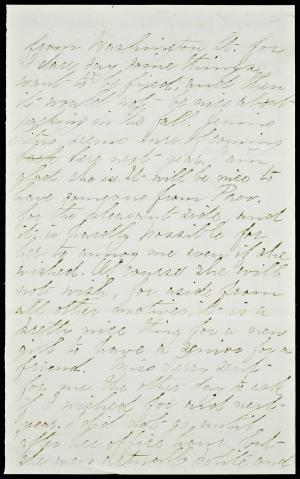 from Washington St. for
I dare say some things
want to be fixed, and then
it would not be nice about
packing in the fall. Jennie
Otis seems sure of coming
back here next year. I am
glad she is. It will be nice to
have someone from Prov.
for the pleasant side, and
it is hardly possible for
her to annoy me even if she
wished. Of course she will
not wish, for aside from
all other motives, it is a
pretty nice thing for a new
girl to have a senior for a
friend. Miss Terry sent
for me the other day to ask
if I wished for aid next
year. I did not go until
after her office hour, but
she was actually polite and